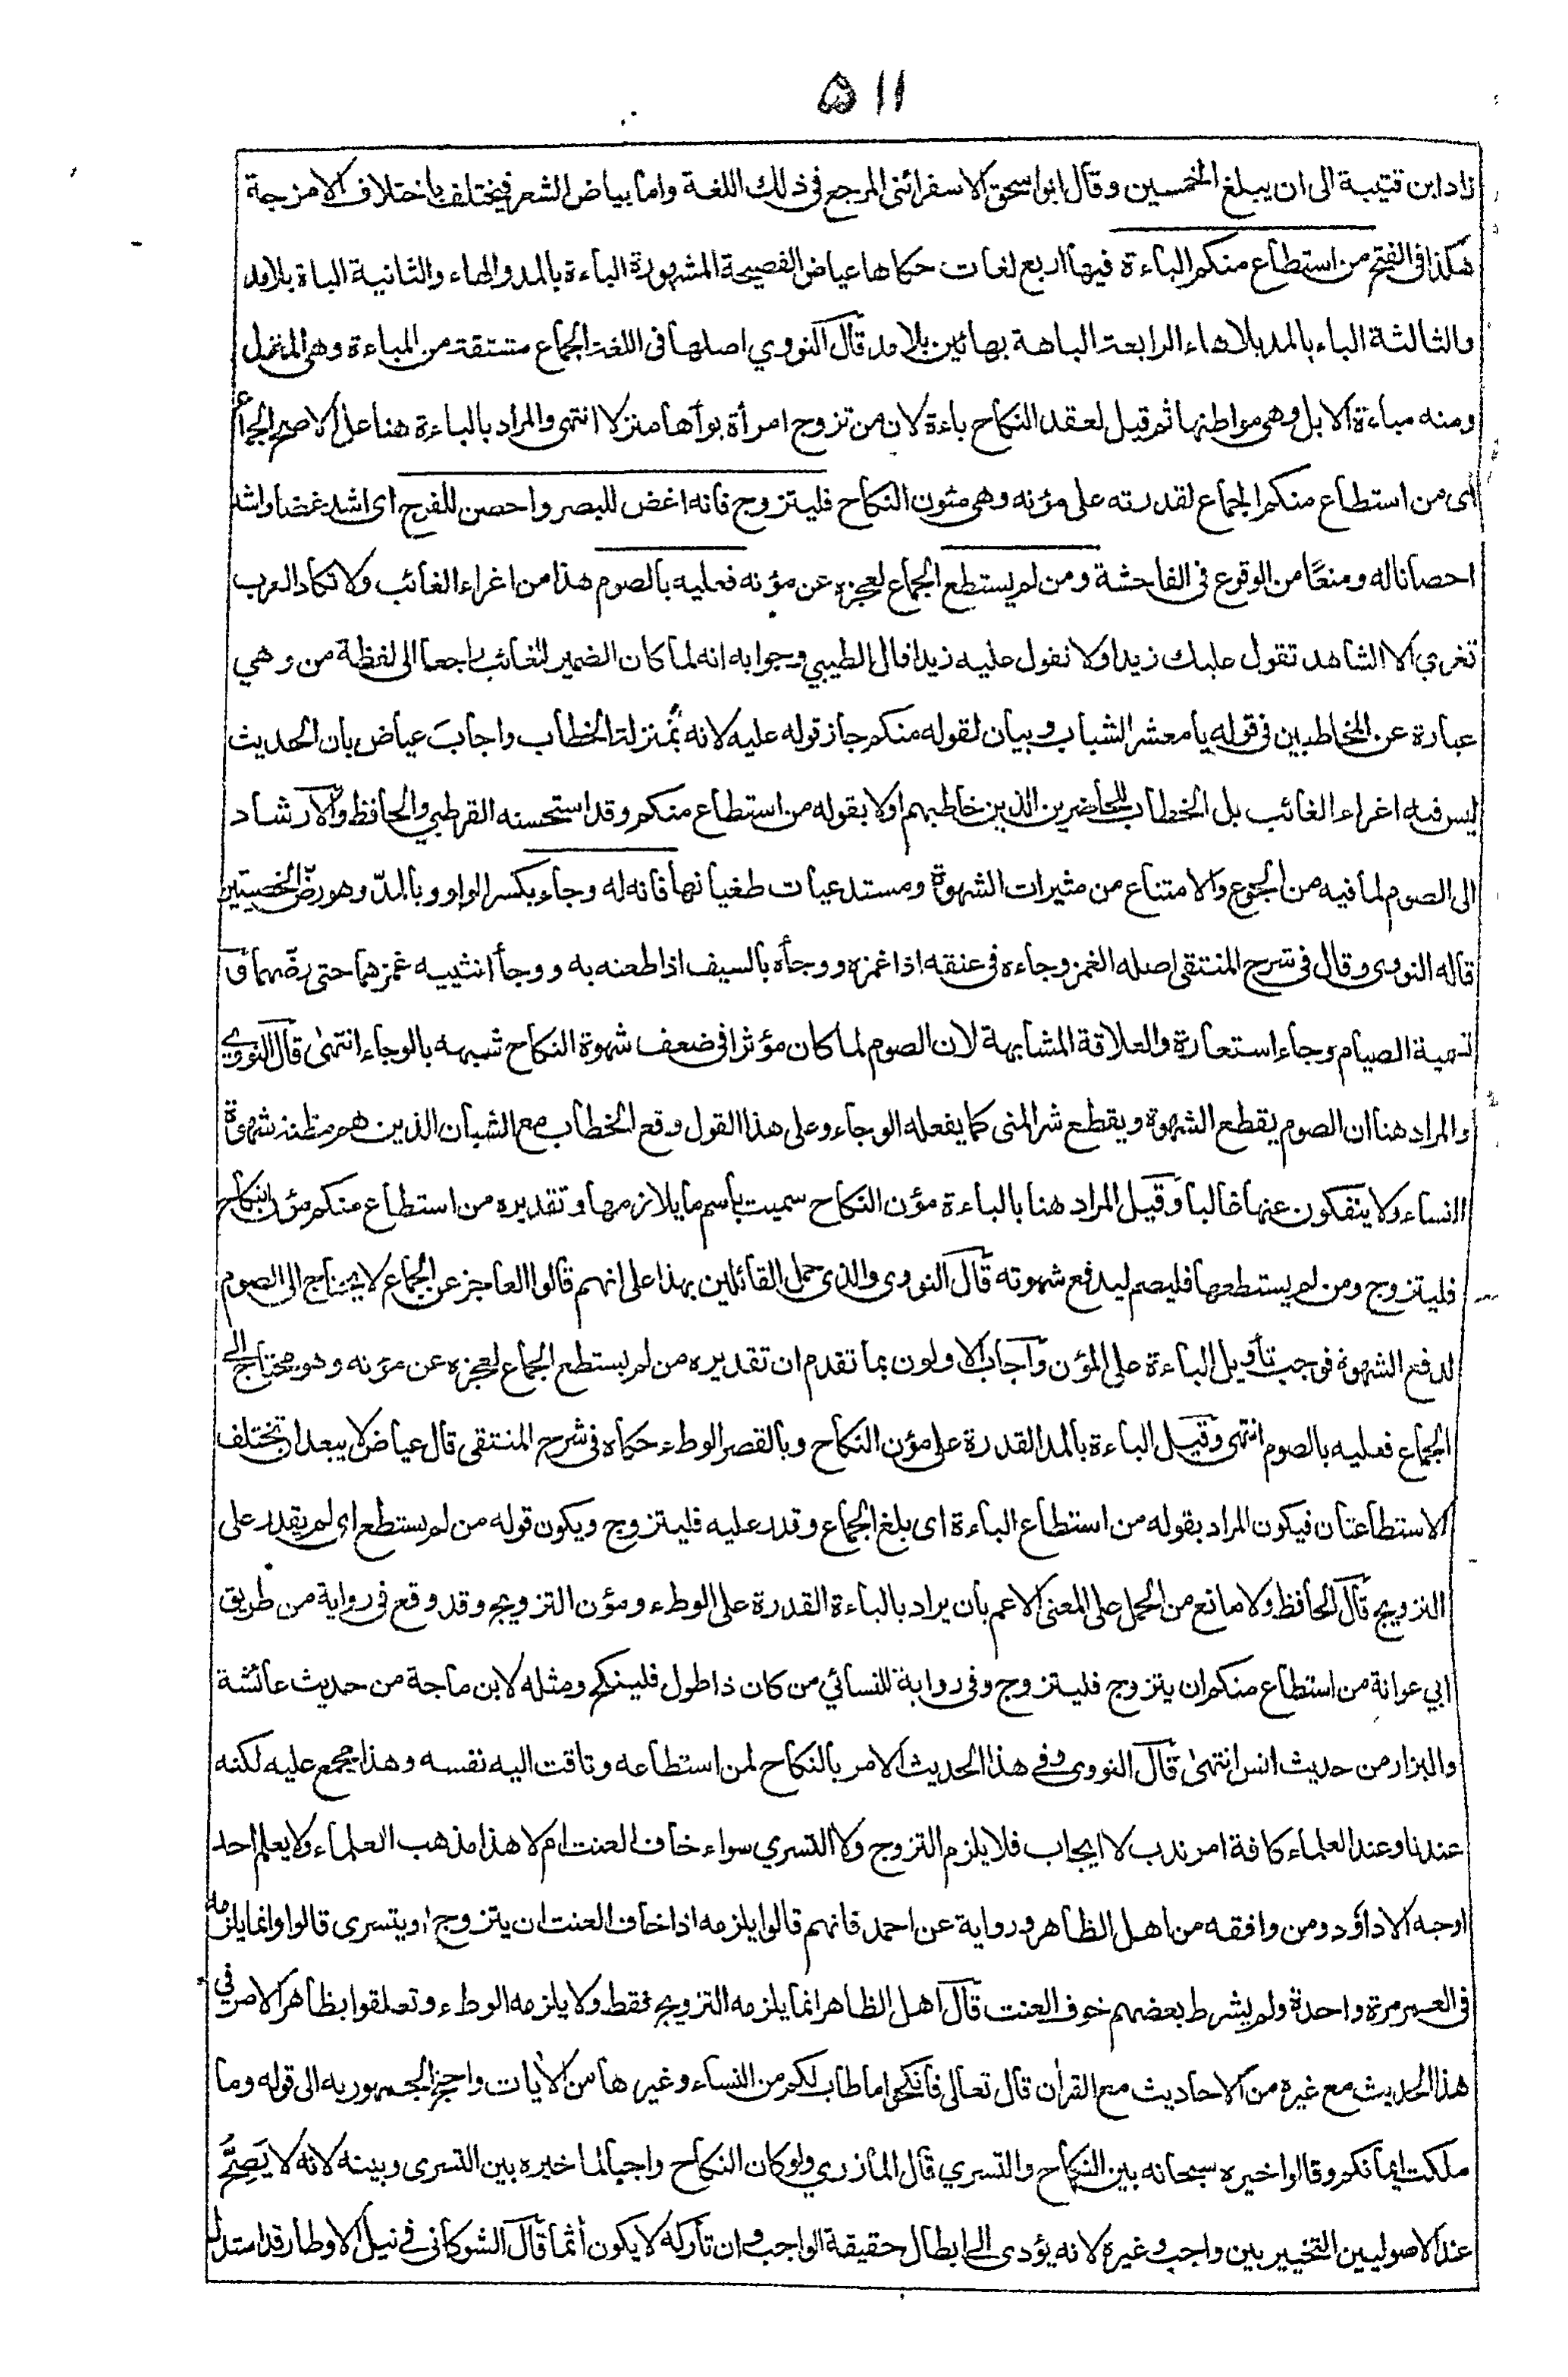 ۵۱۱
زاد ابن قتيبة الى ان يبلغ الخمسين وقال ابو اسحق الاسفرائنى المرجع فى ذلك اللغة واما بياض الشعر فيختلف باختلاف الامزجة
هكذا فى الفتح من استطاع منكم الباءة فيها اربع لغات حكاها عياض الفصيحة المشهورة الباءة بالمد والهاء والثانية الباة بلا مد
والثالثة الباء بالمد بلا هاء الرابعة الباهة بهائين بلا مد قال النووي اصلها فى اللغة الجماع مشتقة من المباءة وهى المنزل
ومنه مباءة الابل وهى مواطنها ثم قيل لعقد النكاح باءة لان من تزوج امرأة بوأها منزلا انتهى والمراد بالباءة هنا على الاصح الجماع
اى من استطاع منكم الجماع لقدرته على مؤنه وهى مئون النكاح فليتزوج فانه اغض للبصر واحصن للفرج اى اشد غضا واشد
احصانا له ومنعًا من الوقوع فى الفاحشة ومن لم يستطع الجماع لعجزه عن مؤنه فعليه بالصوم هذا من اغراء الغائب ولا تكاد العرب
تغري الا الشاهد تقول عليك زيدا ولا تقول عليه زيدا قال الطيبي وجوابه انه لما كان الضمير للغائب راجعا الى لفظة من وهي
عبارة عن المخاطبين فى قوله يا معشر الشباب وبيان لقوله منكم جاز قوله عليه لانه بمنزلة الخطاب واجاب عياض بان الحديث
ليس فيه اغراء الغائب بل الخطاب للحاضرين الذين خاطبهم اولا بقوله من استطاع منكم وقد استحسنه القرطبي والحافظ والارشاد
الى الصوم لما فيه من الجوع والامتناع من مثيرات الشهوة ومستدعيات طغيانها فانه له وجاء بكسر الواو وبالمدّ وهو رضّ الخصيتين
قاله النووى وقال فى شرح المنتقى اصله الغمز وجاءه فى عنقه اذا غمزه ووجأه بالسيف اذا طعنه به ووجأ انثييه غمزهما حتى رضّهما و
تسمية الصيام وجاء استعارة والعلاقة المشابهة لان الصوم لما كان مؤثرا فى ضعف شهوة النكاح شبهه بالوجاء انتهىٰ قال النووي
والمراد هنا ان الصوم يقطع الشهوة ويقطع شر المنى كما يفعله الوجاء وعلى هذا القول وقع الخطاب مع الشبان الذين هم مظنة شهوة
النساء ولا ينفكون عنها غالبا وقيل المراد هنا بالباءة مؤن النكاح سميت باسم ما يلازمها وتقديره من استطاع منكم مؤن النكاح
فليتزوج ومن لم يستطعها فليصم ليدفع شهوته قال النووى والذى حمل القائلين بهذا على انهم قالوا العاجز عن الجماع لا يحتاج الى الصوم
لدفع الشهوة فوجب تأويل الباءة على المؤن واجاب الاولون بما تقدم ان تقديره من لم يستطع الجماع لعجزه عن مؤنه وهو محتاج الى
الجماع فعليه بالصوم انتهى وقيل الباءة بالمد القدرة على مؤن النكاح وبالقصر الوطء حكاه فى شرح المنتقى قال عياض لا يبعد ان تختلف
الاستطاعتان فيكون المراد بقوله من استطاع الباءة اى بلغ الجماع وقدر عليه فليتزوج ويكون قوله من لم يستطع اى لم يقدر على
التزويج قال الحافظ ولا مانع من الحمل على المعنى الاعم بأن يراد بالباءة القدرة على الوطء ومؤن التزويج وقد وقع فى رواية من طريق
ابي عوانة من استطاع منكم ان يتزوج فليتزوج وفى رواية للنسائي من كان ذا طول فلينكح ومثله لابن ماجة من حديث عائشة
والبزار من حديث انس انتهىٰ قال النووى وفي هذا الحديث الامر بالنكاح لمن استطاعه وتاقت اليه نفسه وهذا مجمع عليه لكنه
عندنا وعند العلماء كافة امر ندب لا ايجاب فلا يلزم التزوج ولا التسري سواء خاف العنت ام لا هذا مذهب العلماء ولا يعلم احد
اوجبه الا داؤد ومن وافقه من اهل الظاهر ورواية عن احمد فانهم قالوا يلزمه اذا خاف العنت ان يتزوج او يتسرى قالوا وانما يلزمه
فى العمر مرة واحدة ولم يشرط بعضهم خوف العنت قال اهل الظاهر انما يلزمه التزويج فقط ولا يلزمه الوطء وتعلقوا بظاهر الامر في
هذا الحديث مع غيره من الاحاديث مع القران قال تعالى فانكحوا ما طاب لكم من النساء وغيرها من الاٰيات واحتج الجمهور به الى قوله وما
ملكت ايمانكم وقالوا خيره سبحانه بين النكاح والتسري قال المازري ولو كان النكاح واجبا لما خيره بين التسرى وبينه لانه لا يَصِحُّ
عند الاصوليين التخيير بين واجب وغيره لانه يؤدى الى ابطال حقيقة الواجب وان تاركه لا يكون أثما قال الشوكانى في نيل الاوطار قد استدل